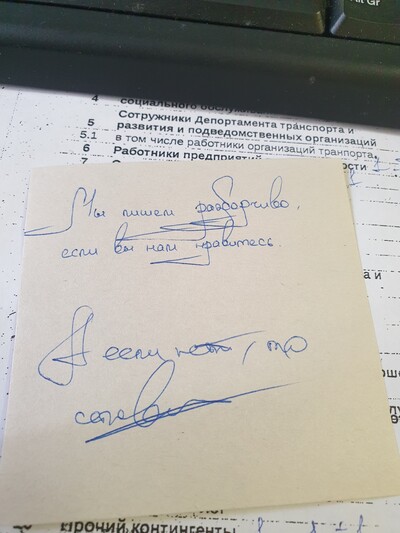 Alt Gr
4 социального обслу
5 Сотрудники Депортамента транспорта и
развития и подведомственных организаций
5.1 в том числе работники организаций транпорта,
6 Работники предприятий
7
Мы пишем разборчиво,
если вы нам нравитесь.
А если нет, то
Прочий контингенты